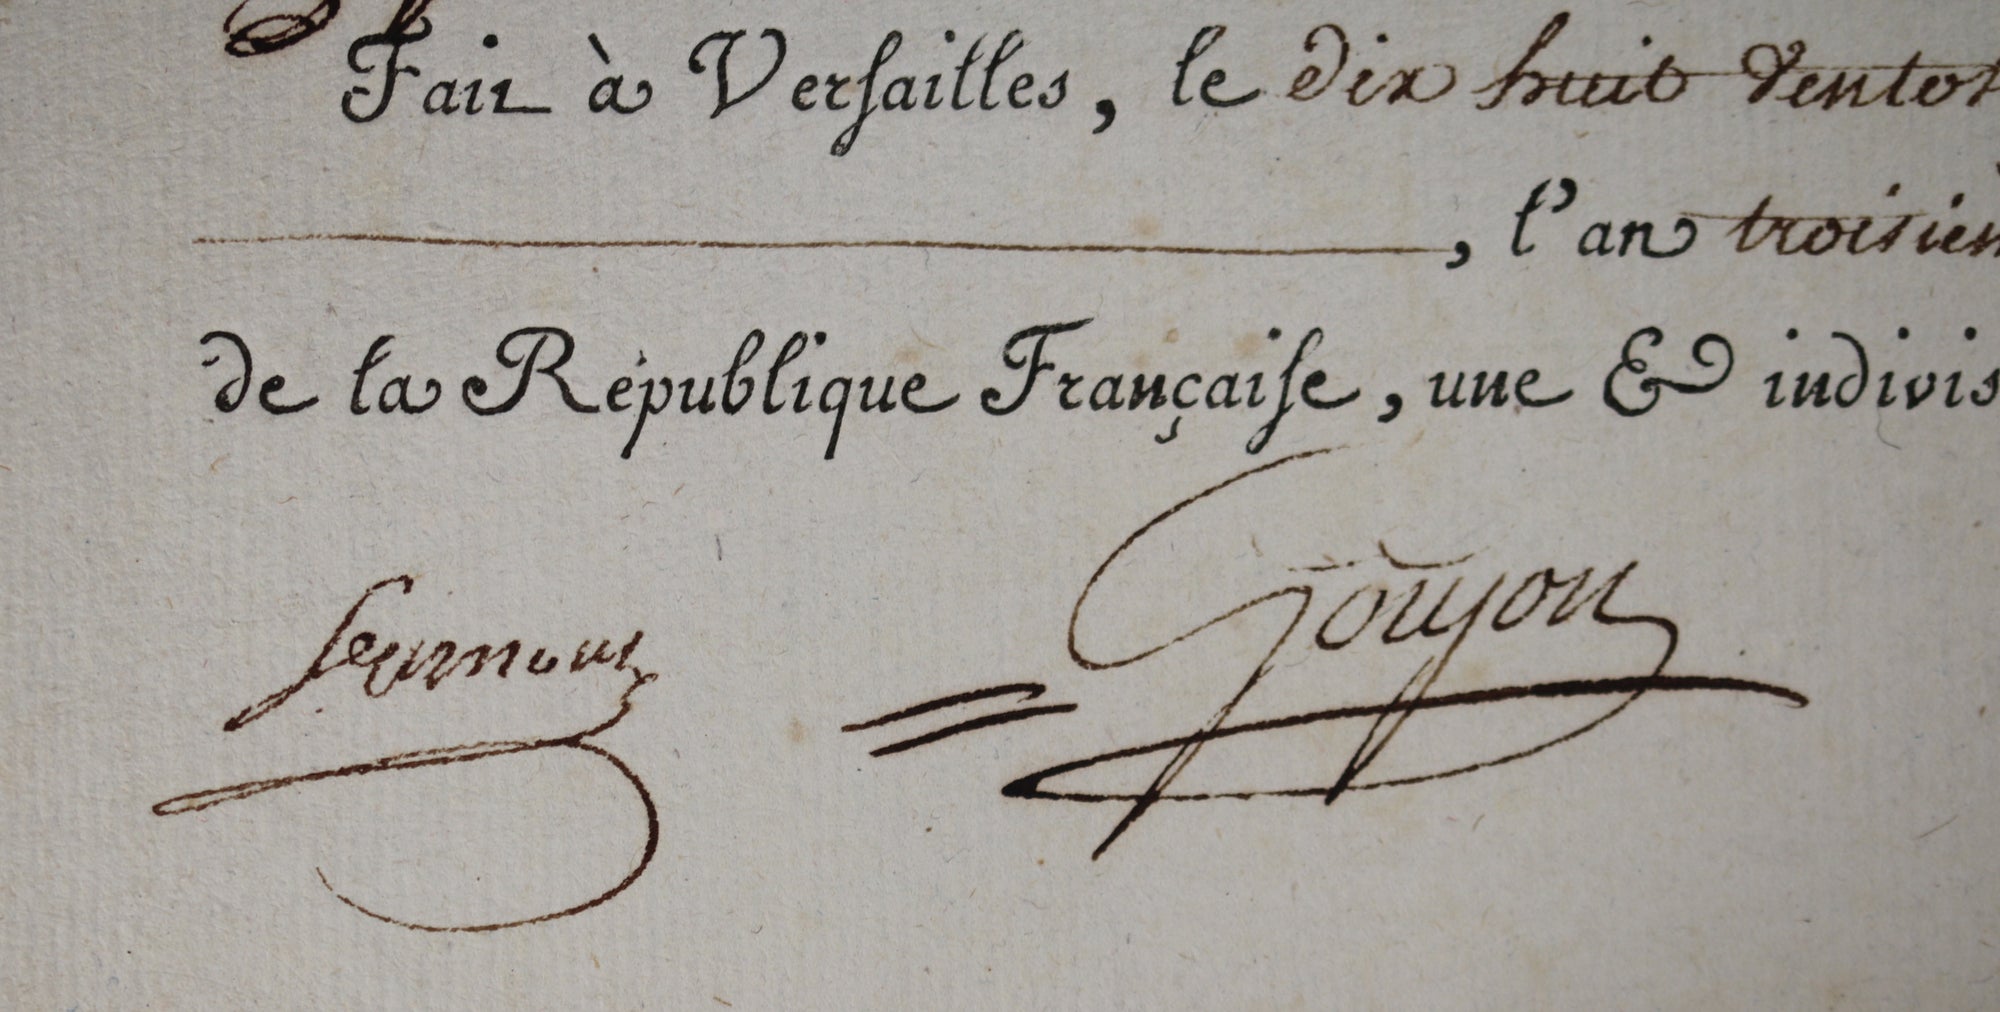 Fait à Versailles, le dix huit Ventos
, l'an troisièm
de la République Françaiſe, une & indivis
Goujon